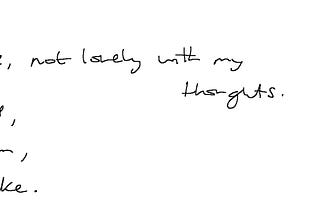 , not lonely with my
thoughts.
,
,
ke.